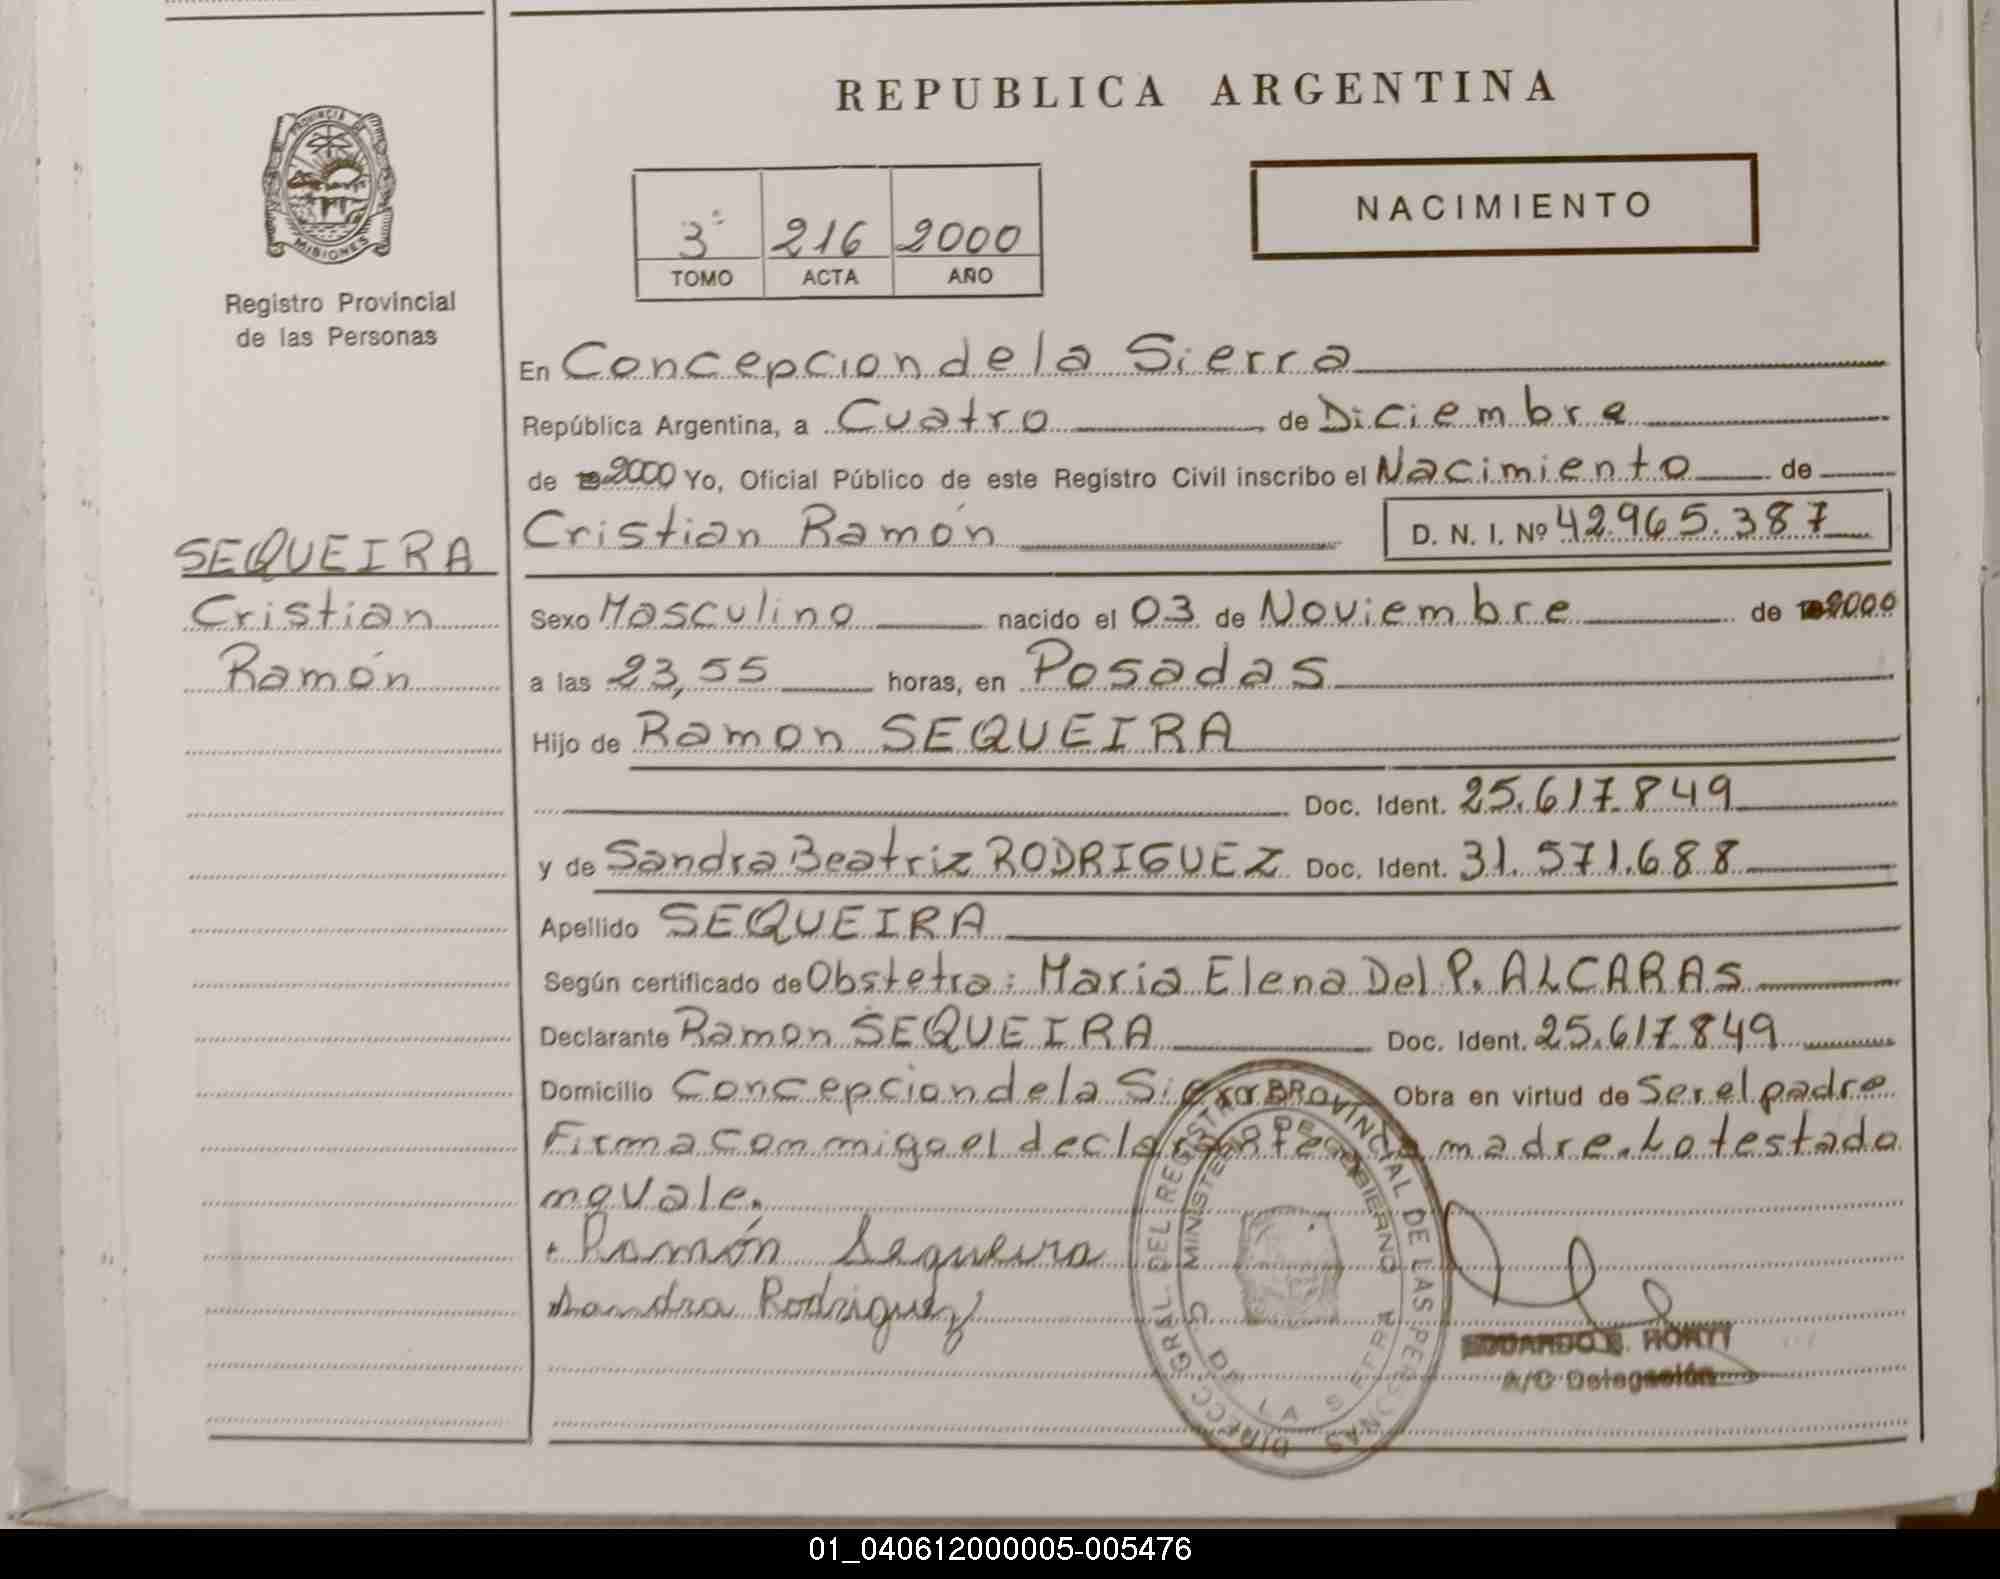 REPUBLICA ARGENTINA
PROVINCIA DE MISIONES
Registro Provincial
de las Personas
3º 216 2000
TOMO ACTA AÑO
NACIMIENTO
En Concepcion de la Sierra
República Argentina, a Cuatro de Diciembre
de 2000 Yo, Oficial Público de este Registro Civil inscribo el Nacimiento de
SEQUEIRA
Cristian
Ramón
Cristian Ramón D. N. I. Nº 42.965.387
Sexo Masculino nacido el 03 de Noviembre de 2000
a las 23,55 horas, en Posadas
Hijo de Ramon SEQUEIRA
Doc. Ident. 25.617.849
y de Sandra Beatriz RODRIGUEZ Doc. Ident. 31.571.688
Apellido SEQUEIRA
Según certificado de Obstetra: Maria Elena Del P. ALCARAS
Declarante Ramon SEQUEIRA Doc. Ident. 25.617.849
Domicilio Concepcion de la Sierra Obra en virtud de Ser el padre
Firma con migo el declarante y madre. Lo testado
no vale.
Ramón Sequeira
Sandra Rodriguez
DIRECC. GRAL. DEL REGISTRO PROVINCIAL DE LAS PERSONAS
MINISTERIO DE GOBIERNO
DE LA SIERRA
EDUARDO
A/C Delegación
01_040612000005-005476